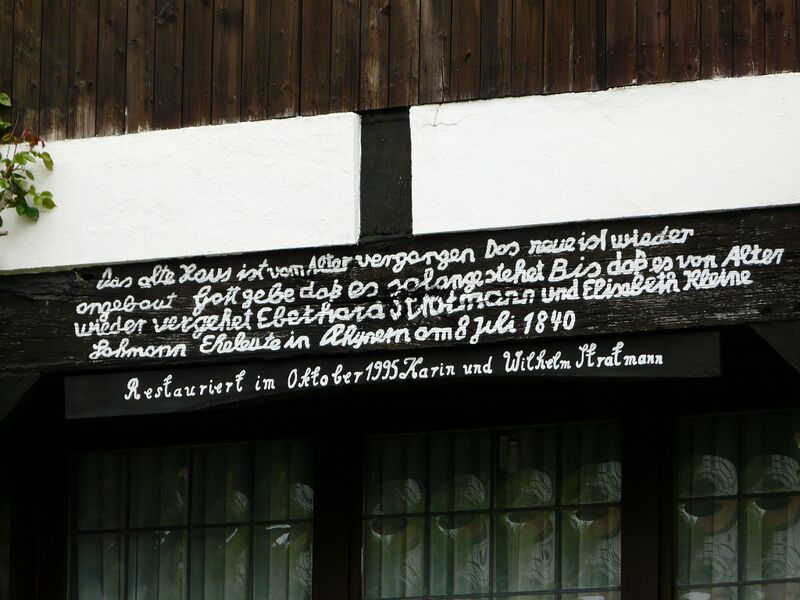 Das alte Haus ist vom Alter vergangen Das neue ist wieder
angebaut Gott gebe daß es solange stehet Bis daß es von Alter
wieder vergehet Eberhard Stratmann und Elisabeth Kleine
Lohmann Eheleute in Rhynern am 8 Juli 1840
Restauriert im Oktober 1995 Karin und Wilhelm Stratmann